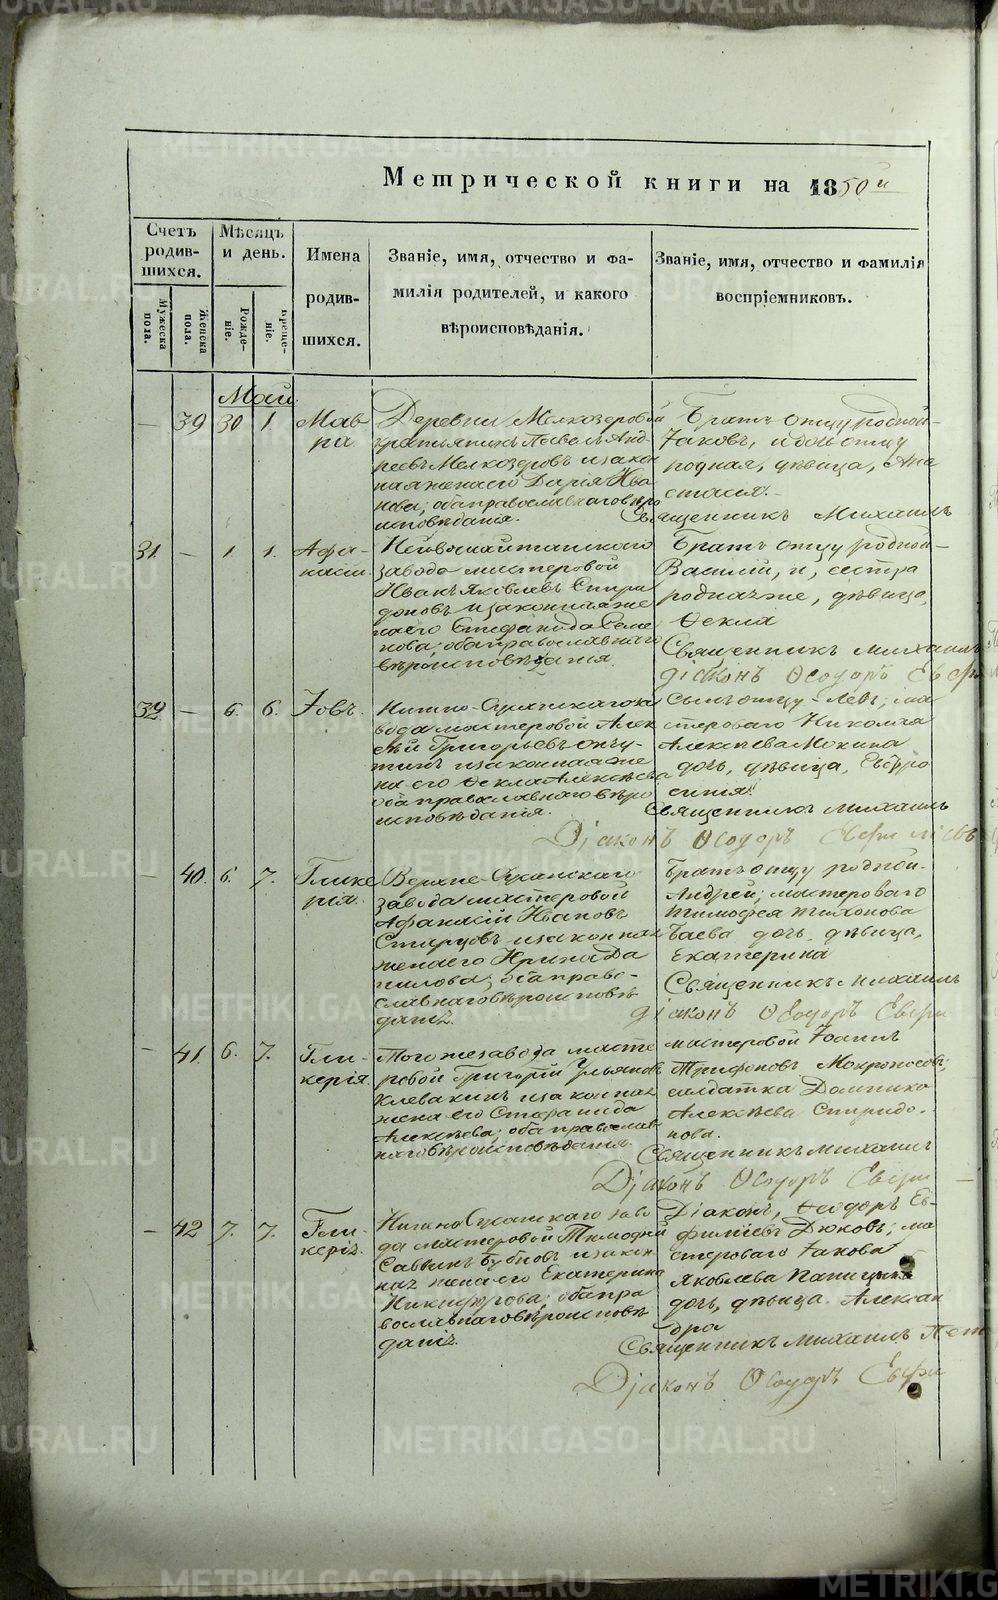 Метрической книги на 1850й
Счетъ родив-шихся.
Мужеска пола.
Женска пола.
Мѣсяцъ и день.
Рожде-ніе.
Креще-ніе.
Имена родив-шихся.
Званіе, имя, отчество и фа-
милія родителей, и какого
вѣроисповѣданія.
Званіе, имя, отчество и фамилія
воспріемниковъ.
Май.
— 39 30 1 Мав
ра
Деревни Мелкозеровой
крестьянинъ Павелъ Анд-
реевъ Мелкозеровъ и закон
ная жена его Дарія Ива
нова; оба православнаго вѣро
исповѣданія.
Братъ отцу родной
Іаковъ, и дочь отцу
родная, дѣвица, Ана
стасія.
Священникъ Михаилъ
31. — 1. 1. Афа-
насій
Нейвошайтанскаго
завода мастеровой
Иванъ Яковлевъ Спири
доновъ и законная же
на его Стефанида Семе
нова; оба православнаго
вѣроисповѣданія.
Братъ отцу родной
Василій, и, сестра
родная же, дѣвица,
Ѳекла
Священникъ Михаилъ
Діаконъ Ѳеодоръ Евфи
32 — 6. 6. Іовъ.
завода мастеровой Алек
сѣй Григорьевъ
и законная же
на его Ѳекла Алексѣева
оба православнаго вѣро
исповѣданія.
Сынъ отцу Левъ; ма
стероваго Николая
Алексѣева Мокина
дочь, дѣвица, Евфро
синія.
Священникъ Михаилъ
Діаконъ Ѳеодоръ Евфиміевъ
— 40. 6. 7. Глике
рія.
завода мастеровой
Афанасій Ивановъ
Старцовъ и законная
жена его Ирина Да
нилова; оба право-
славнаго вѣроисповѣ
данія.
Братъ отцу родной
Андрей; мастероваго
Тимофея Тихонова
Баева дочь, дѣвица,
Екатерина
Священникъ Михаилъ
Діаконъ Ѳеодоръ Евфи
— 41. 6. 7. Гли-
керія
Того же завода масте
ровой Григорій Ульяновъ
Клевакинъ и законная
жена его Стефанида
Алексѣева; оба православ
наго вѣроисповѣданія.
мастеровой Іоаннъ
Трифоновъ Мокроносовъ;
солдатка Домника
Алексѣева Спиридо-
нова.
Священникъ Михаилъ
Діаконъ Ѳеодоръ Евфи
— 42 7. 7. Гли-
керія.
заво
да мастеровой Тимофей
Саввинъ Бубновъ и закон
ная жена его Екатерина
Никифорова; оба пра
вославнаго вѣроисповѣ
данія.
Діаконъ, Ѳеодоръ Ев-
фиміевъ Дюковъ; ма
стероваго Іакова
Яковлева Паницына
дочь, дѣвица Алексан
дра
Священникъ Михаилъ Пет
Діаконъ Ѳеодоръ Евфи
METRIKI.GASO-URAL.RU